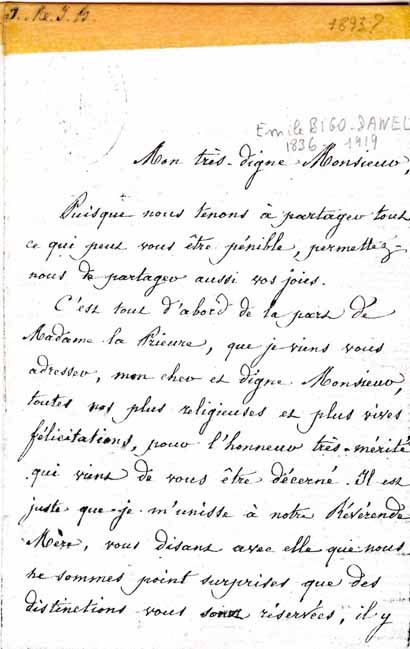 J. M. J. B.
1893?
Emile BIGO-DANEL
1836 - 1919
Mon très-digne Monsieur,
Puisque nous tenons à partager tout
ce qui peut vous être pénible, permettez-
nous de partager aussi vos joies.
C'est tout d'abord de la part de
Madame la Prieure, que je viens vous
adresser, mon cher et digne Monsieur,
toutes nos plus religieuses et plus vives
félicitations, pour l'honneur très-mérité
qui vient de vous être décerné. Il est
juste que je m'unisse à notre Révérende
Mère, vous disant avec elle que nous
ne sommes point surprises que des
distinctions vous sont réservées, il y